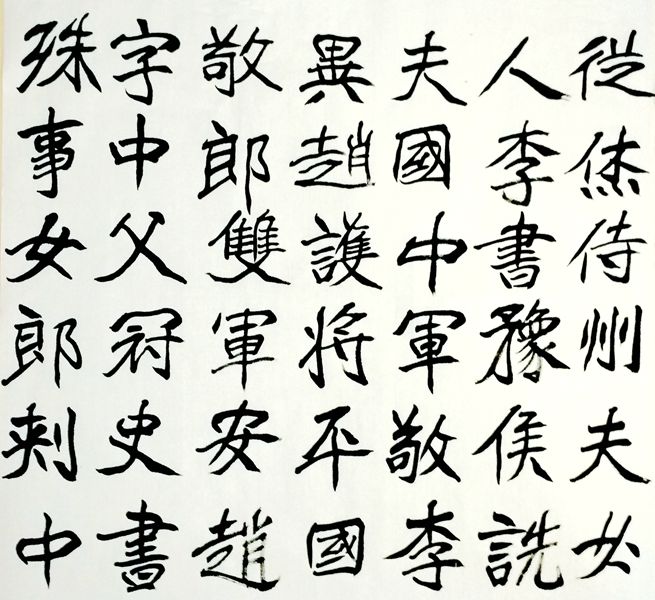 從侍州夫女
人李書豫侯詵
夫國中軍敬李
異趙護將平國
敬郎雙軍安趙
字中父冠史書
殊事女郎刾中